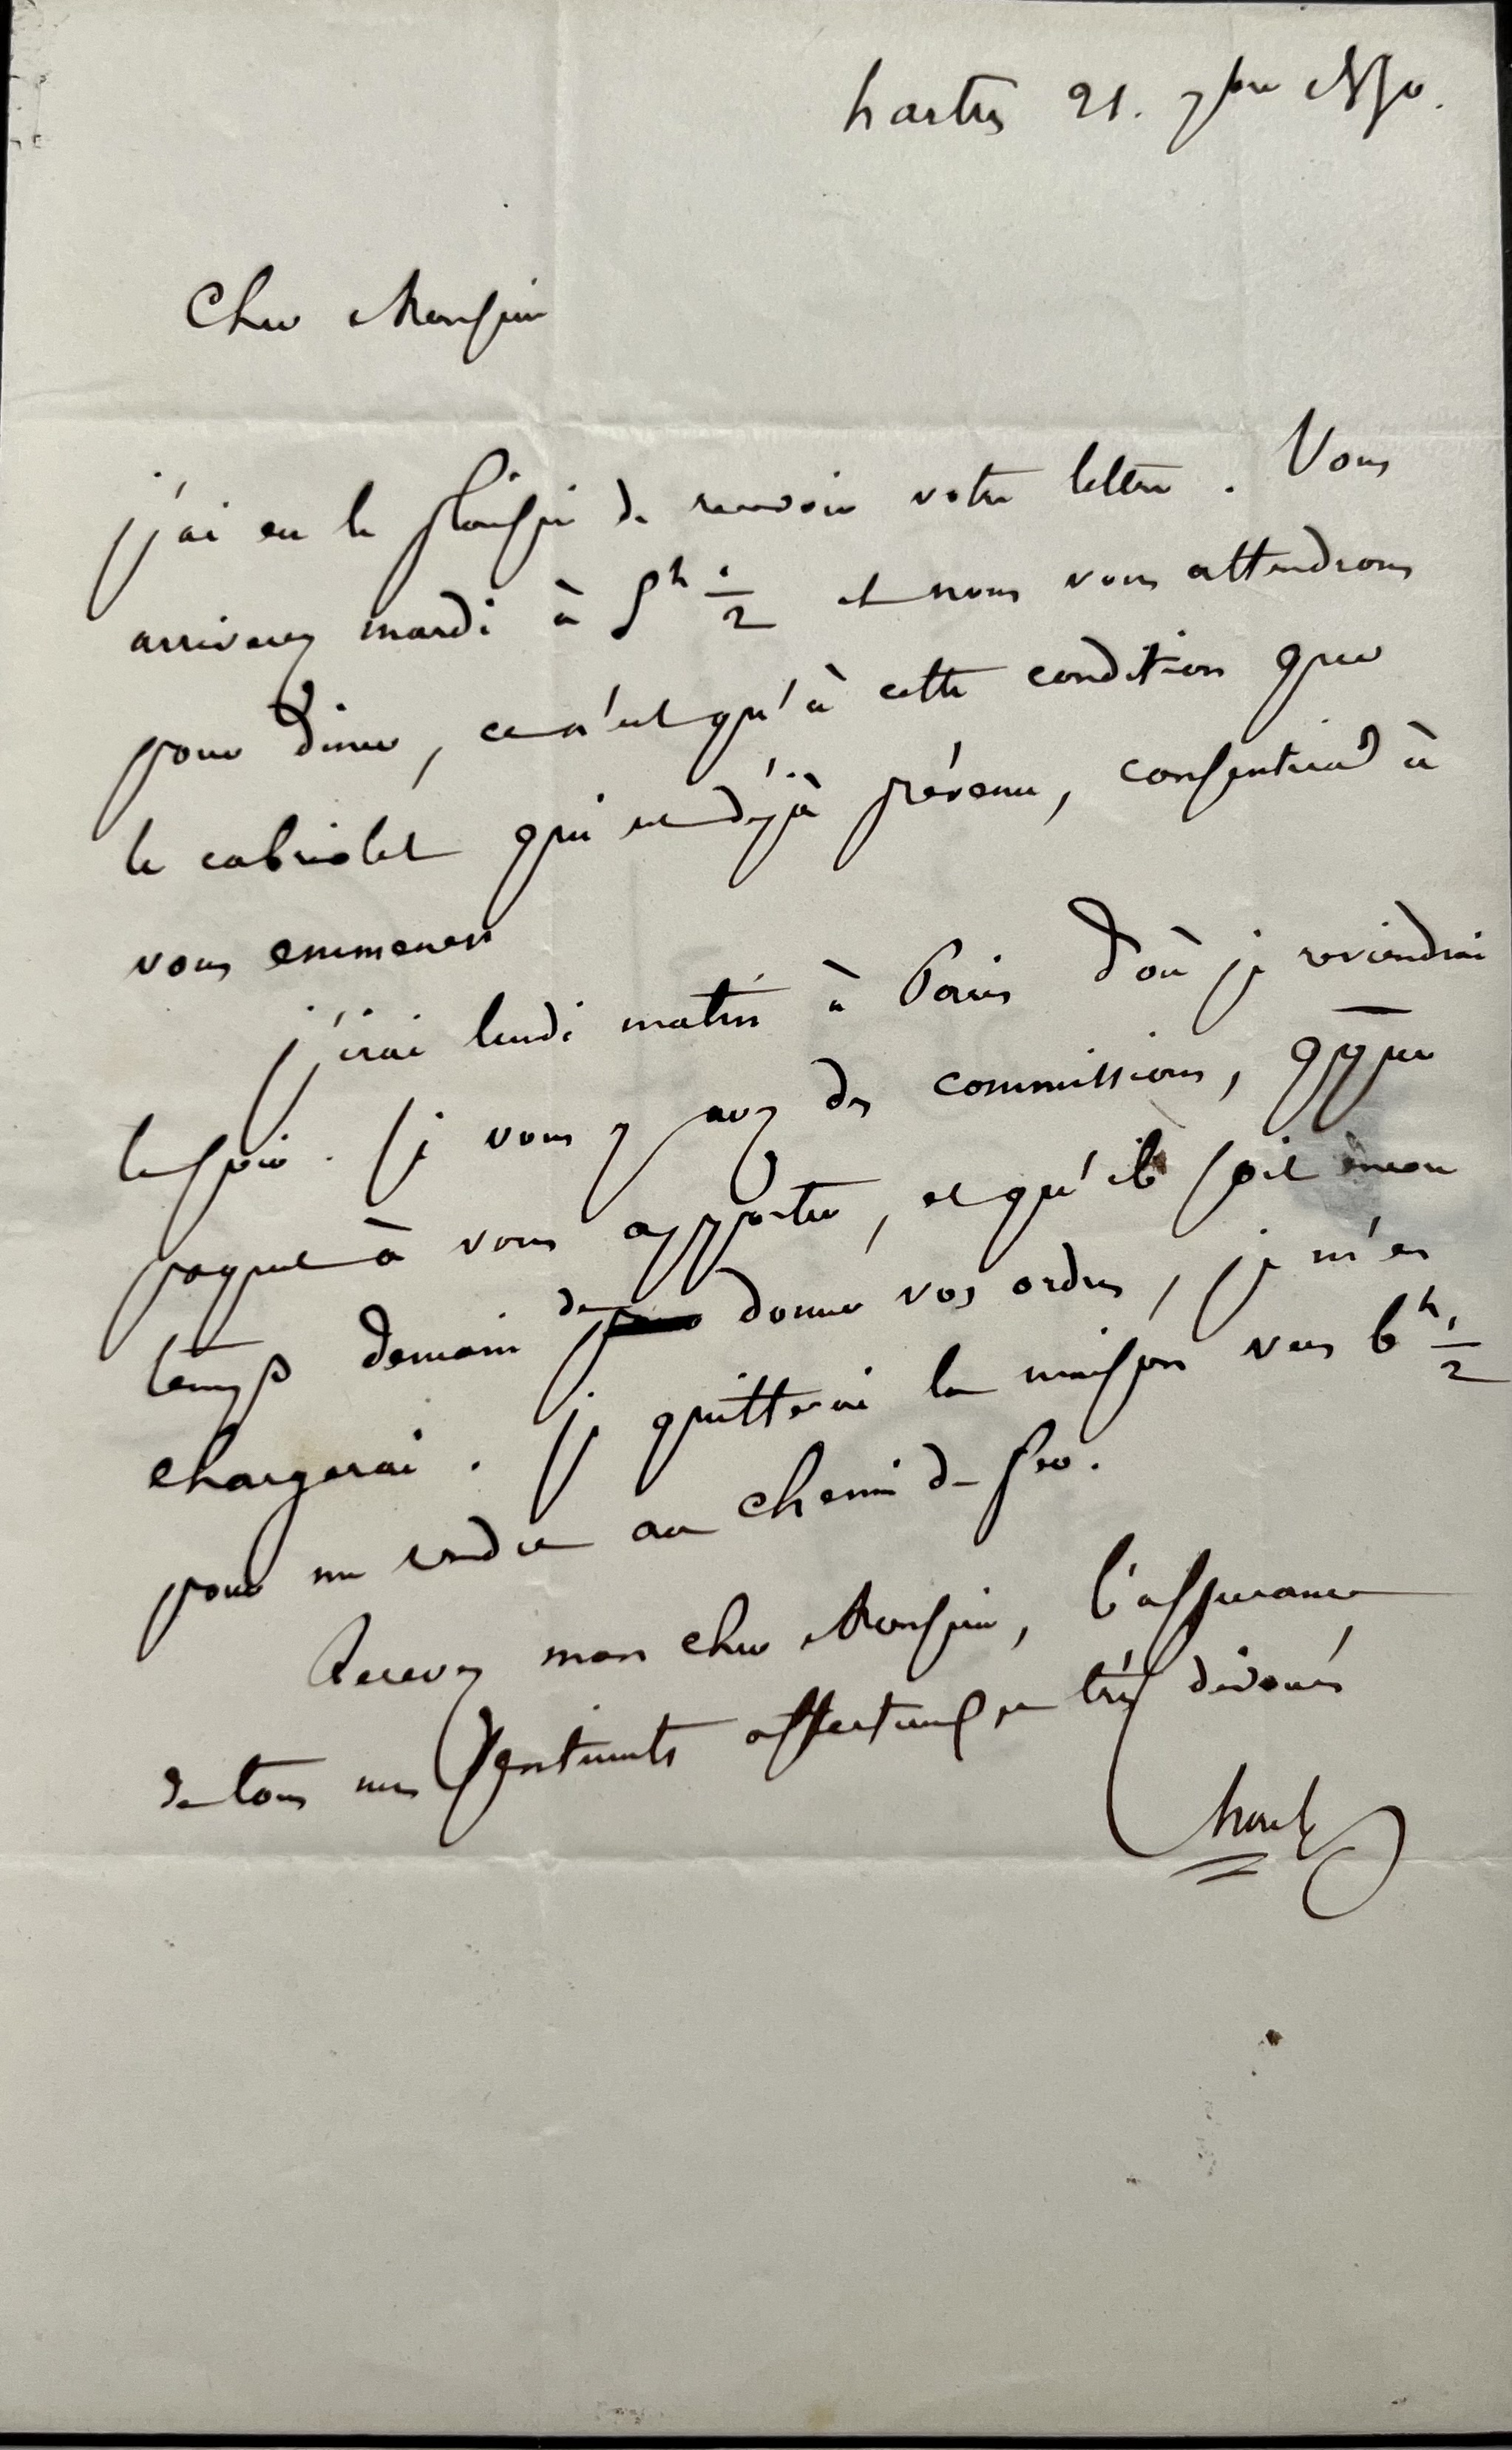 hartres 21. 7bre 1850.
Cher Monsieur
j'ai eu le plaisir de recevoir votre lettre. Vous
arriverez mardi à 5h 1/2 et nous vous attendrons
pour diner, ce n'est qu'à cette condition que
le cabriolet qui est déjà prévenu, consentira à
vous emmener
j'irai lundi matin à Paris d'où je reviendrai
le soir. si vous y avez des commissions, qque
paquet à vous apporter, et qu'il soit encore
temps demain de donner vos ordres, je m'en
chargerai. je quitterai la maison vers 6h 1/2
pour me rendre au chemin de fer.
Recevez mon cher Monsieur, l'assurance
de tous mes sentiments affectueux et très dévoués